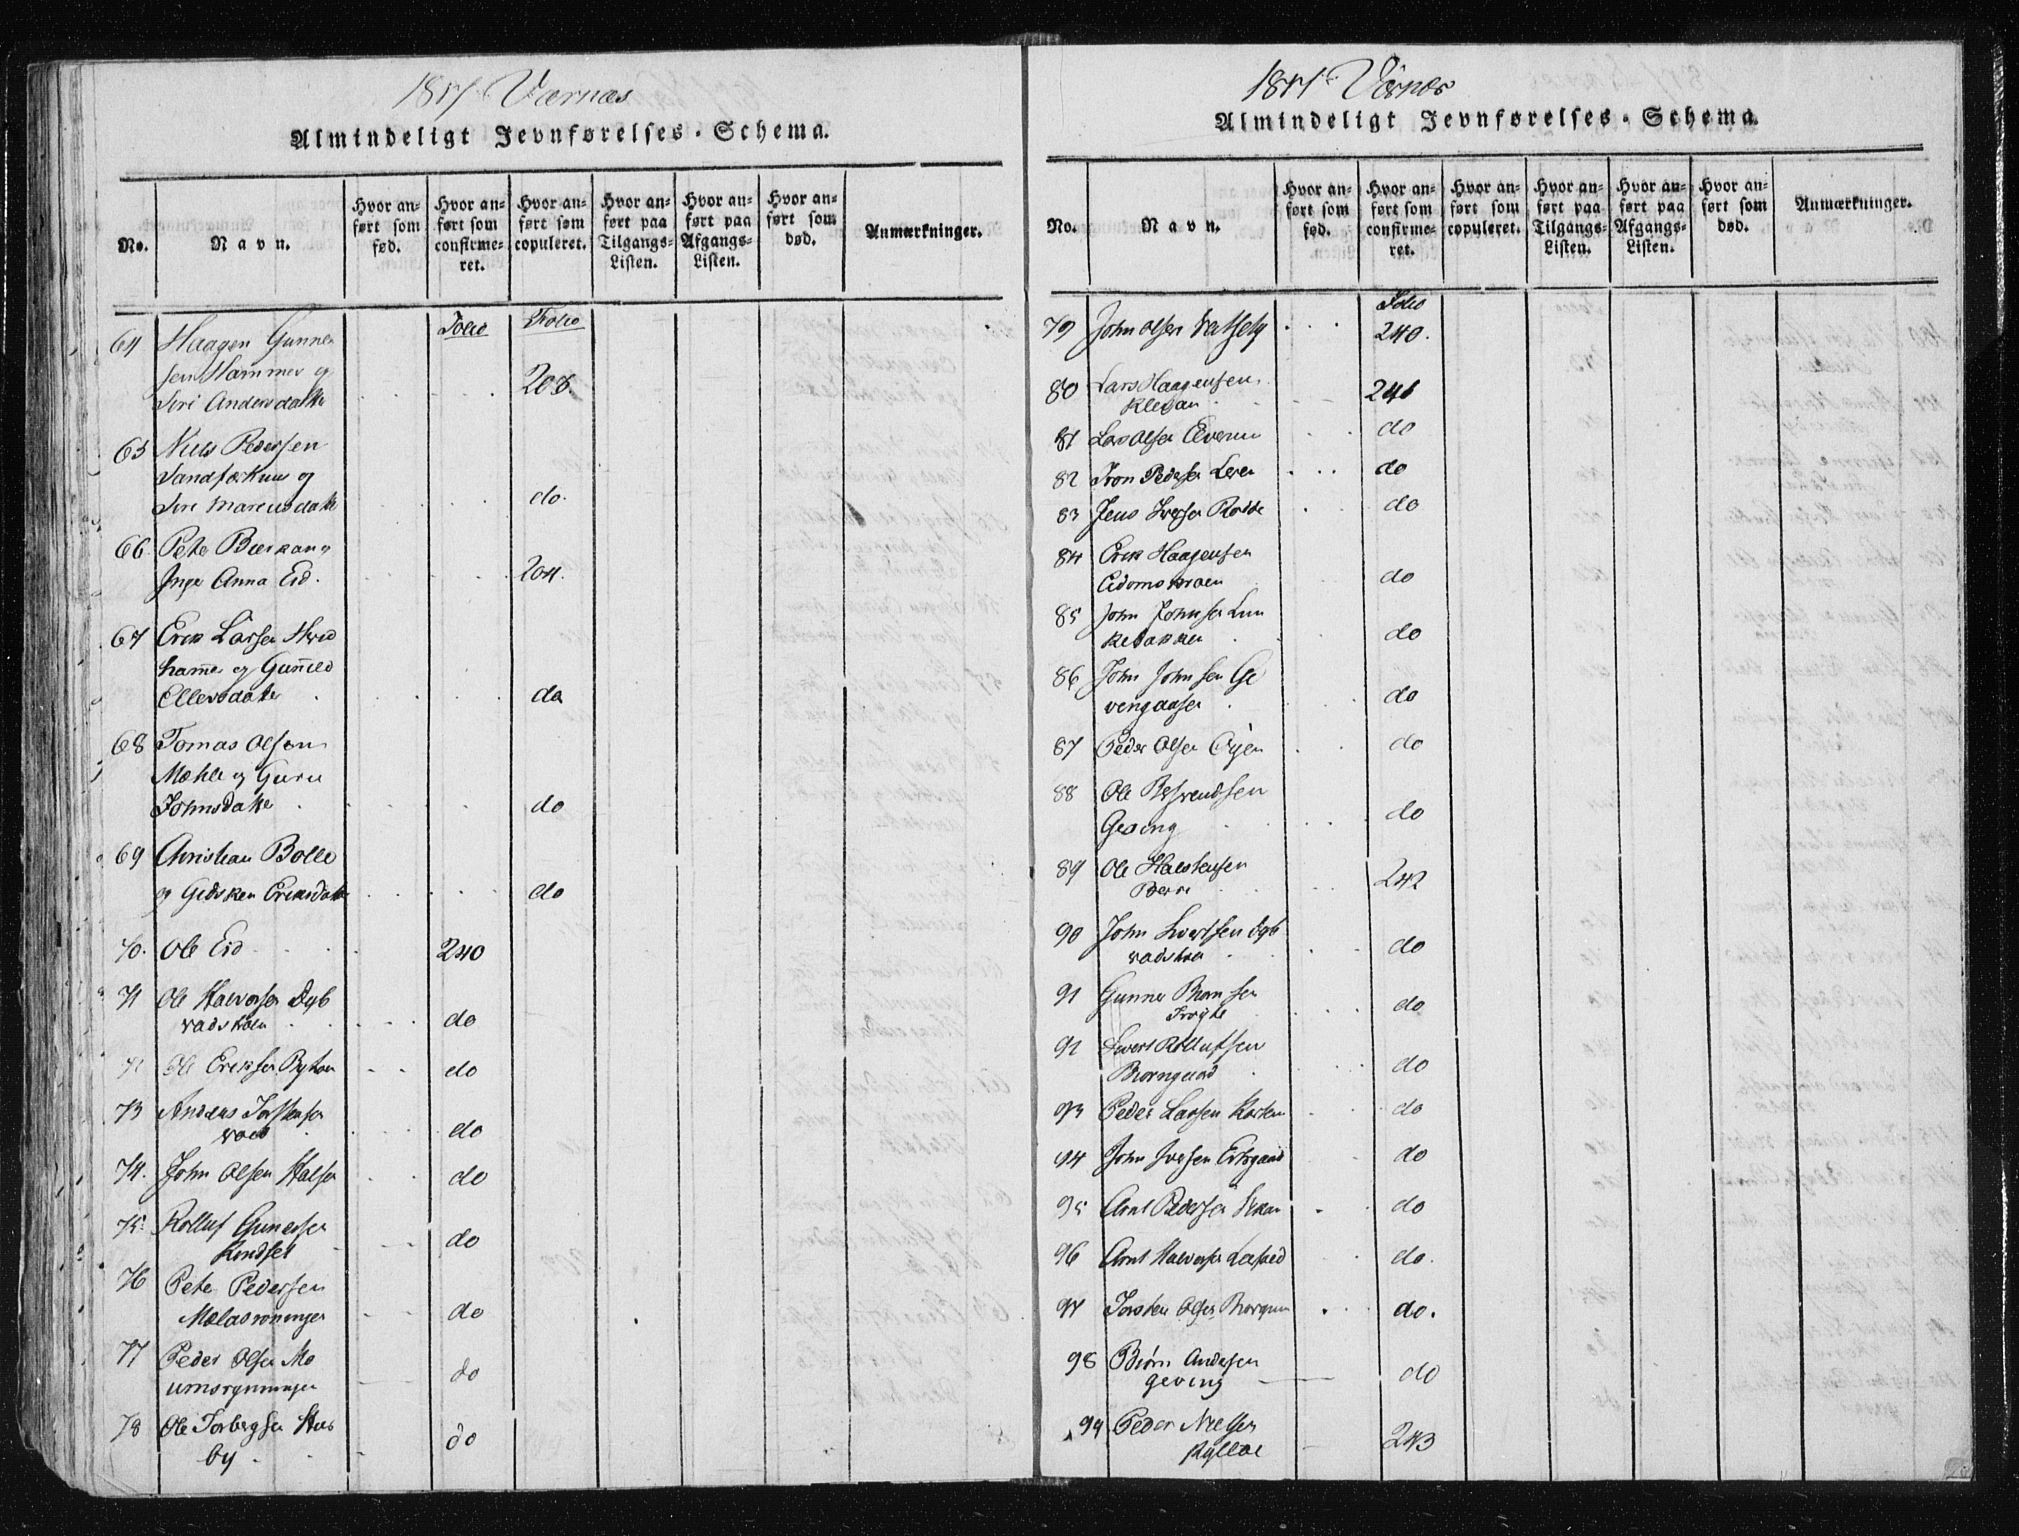 1817 Værnæs
Almindeligt Jevnførelses-Schema.
No.
Navn.
Hvor anført som fød.
Hvor anført som confirmeret.
Hvor anført som copuleret.
Hvor anført paa Tilgangs-Listen.
Hvor anført paa Afgangs-Listen.
Hvor anført som død.
Anmærkninger.
Folio Folio
64 Haagen Gunner
sen Hammer og
Siri Andersdatter 208.
65 Niels Pedersen
og
Siri Marcusdatter do.
66. Peter og
Inge Anna Eid. 204.
67 Erik Larsen
hamer og
Ellevsdatter do
68 Tomas Olsen
Mæhle og Guru
Johnsdatter do
69 Christian Bolle
og Gidsken Eriksdatter do
70. Ole Eid 240
71 Ole Halvorsen Dyb
vadshøen do
72 Ole Eriksen do
73 Anders Torstensen
do
74. John Olsen Halsen do
75. Rolluf Gunersen
do
76 Peter Pedersen
Mælasvoningen do
77 Peder Olsen Mo
do
78 Ole Torbergsen Hus
by do
1817 Værnæs
Almindeligt Jevnførelses-Schema.
No.
Navn.
Hvor anført som fød.
Hvor anført som confirmeret.
Hvor anført som copuleret.
Hvor anført paa Tilgangs-Listen.
Hvor anført paa Afgangs-Listen.
Hvor anført som død.
Anmærkninger.
Folio
79 John Olsen 240.
80 Lars Haagensen
Klevan 241
81 Lars Olsen Elverum do
82 Iron Pedersen do
83 Jens Iversen do
84 Erik Haagensen
do
85 John Johnsen Lun
kebakken do
86 John Johnsen Ge
vengaasen do
87 Peder Olsen Øyen do
88 Ole
Geving do
89 Ole
242
90 John Sivertsen Dyb
vadshøen do
91 Gunner Biørnsen
do
92 Sivert Rollufsen
Biørngaard do
93 Peder Larsen do
94 John Iversen do
95 Arnt Pedersen do
96 Arnt Halvorsen do.
97 Torsten Olsen do.
98 Biørn Andersen
geving do
99 Peder Nielsen
Kylloe 243